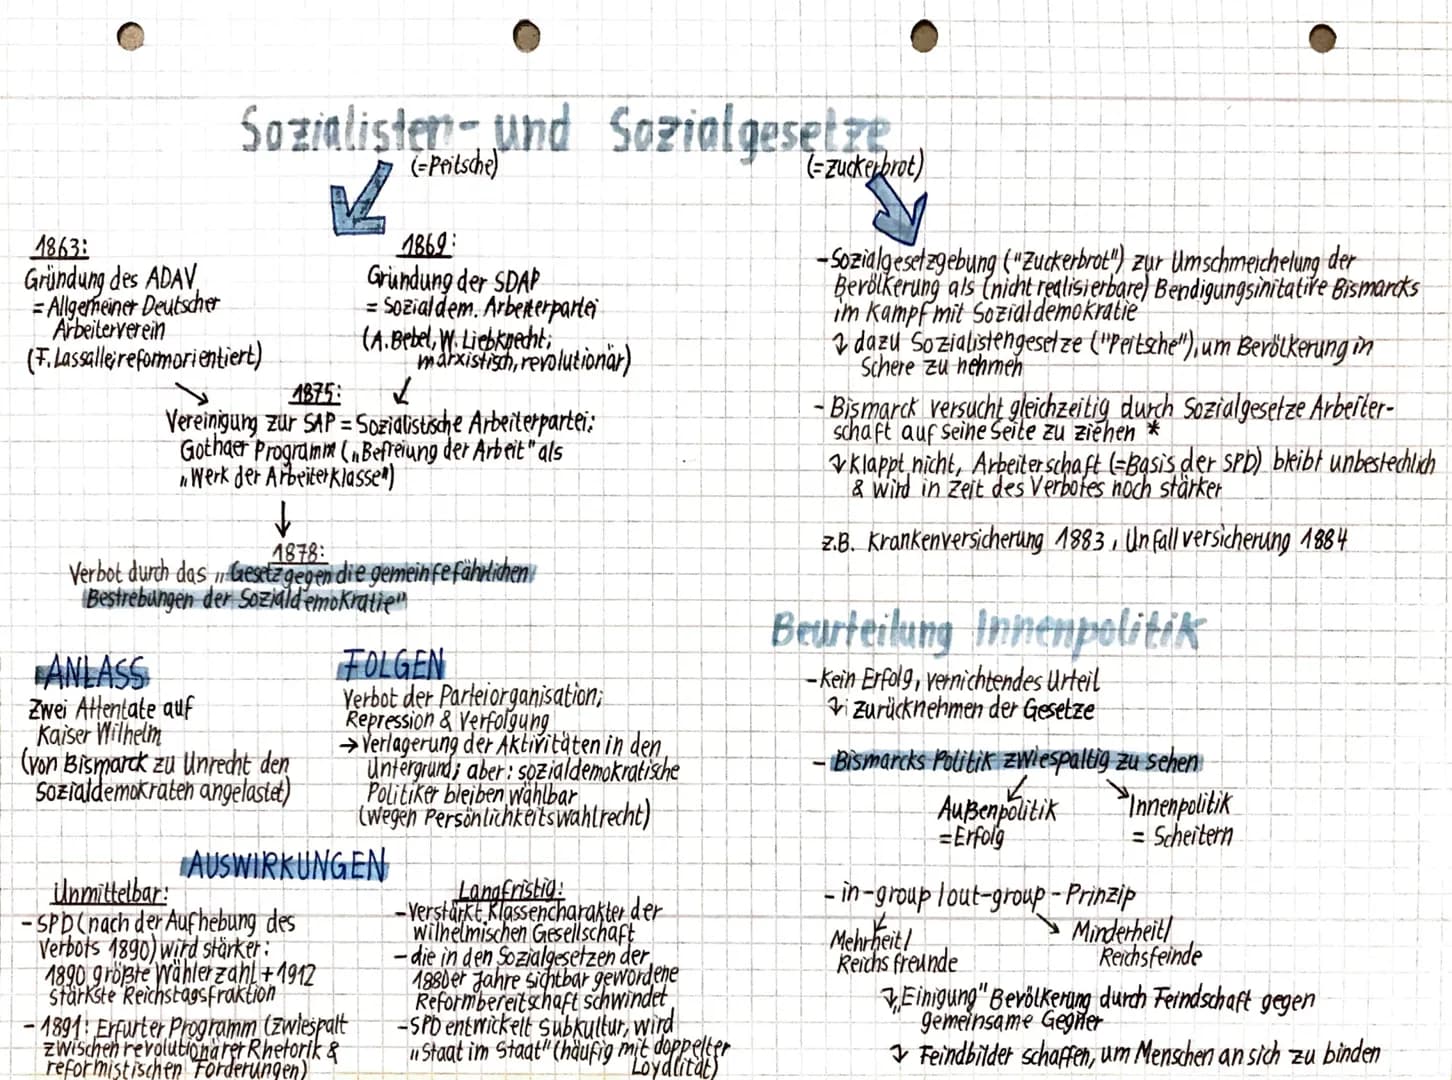 Sozialisten- und Sozialgesetze
(=Peitsche)
(=Zuckerbrot)
1863:
Gründung des ADAV
= Allgemeiner Deutscher
Arbeiterverein
(F. Lassalle; reformorientiert)
1869:
Gründung der SDAP
= Sozialdem. Arbeiterpartei
(A. Bebel, W. Liebknecht;
marxistisch, revolutionär)
1875:
Vereinigung zur SAP = Sozialistische Arbeiterpartei:
Gothaer Programm („Befreiung der Arbeit" als
„Werk der Arbeiterklasse")
1878:
Verbot durch das „Gesetz gegen die gemeingefährlichen
Bestrebungen der Sozialdemokratie"
ANLASS
Zwei Attentate auf
Kaiser Wilhelm
(von Bismarck zu Unrecht den
Sozialdemokraten angelastet)
FOLGEN
Verbot der Parteiorganisation;
Repression & Verfolgung
→ Verlagerung der Aktivitäten in den
Untergrund; aber: sozialdemokratische
Politiker bleiben wählbar
(wegen Persönlichkeitswahlrecht)
AUSWIRKUNGEN
Unmittelbar:
- SPD (nach der Aufhebung des
Verbots 1890) wird stärker:
1890 größte Wählerzahl + 1912
stärkste Reichstagsfraktion
- 1891: Erfurter Programm (Zwiespalt
zwischen revolutionärer Rhetorik &
reformistischen Forderungen)
Langfristig:
- Verstärkt Klassencharakter der
wilhelmischen Gesellschaft
- die in den Sozialgesetzen der
1880er Jahre sichtbar gewordene
Reformbereitschaft schwindet
- SPD entwickelt Subkultur, wird
„Staat im Staat" (häufig mit doppelter
Loyalität)
- Sozialgesetzgebung ("Zuckerbrot") zur Umschmeichelung der
Bevölkerung als (nicht realisierbare) Bendigungsinitative Bismarcks
im Kampf mit Sozialdemokratie
↳ dazu Sozialistengesetze ("Peitsche"), um Bevölkerung in
Schere zu nehmen
- Bismarck versucht gleichzeitig durch Sozialgesetze Arbeiter-
schaft auf seine Seite zu ziehen *
↳ klappt nicht, Arbeiterschaft (=Basis der SPD) bleibt unbestechlich
& wird in Zeit des Verbotes noch stärker
z.B. Krankenversicherung 1883, Unfallversicherung 1884
Beurteilung Innenpolitik
- Kein Erfolg, vernichtendes Urteil
↳ Zurücknehmen der Gesetze
- Bismarcks Politik zwiespaltig zu sehen
Außenpolitik
= Erfolg
Innenpolitik
= Scheitern
- in-group/out-group-Prinzip
Mehrheit/
Reichsfreunde
Minderheit/
Reichsfeinde
↳ „Einigung" Bevölkerung durch Feindschaft gegen
gemeinsame Gegner
↳ Feindbilder schaffen, um Menschen an sich zu binden